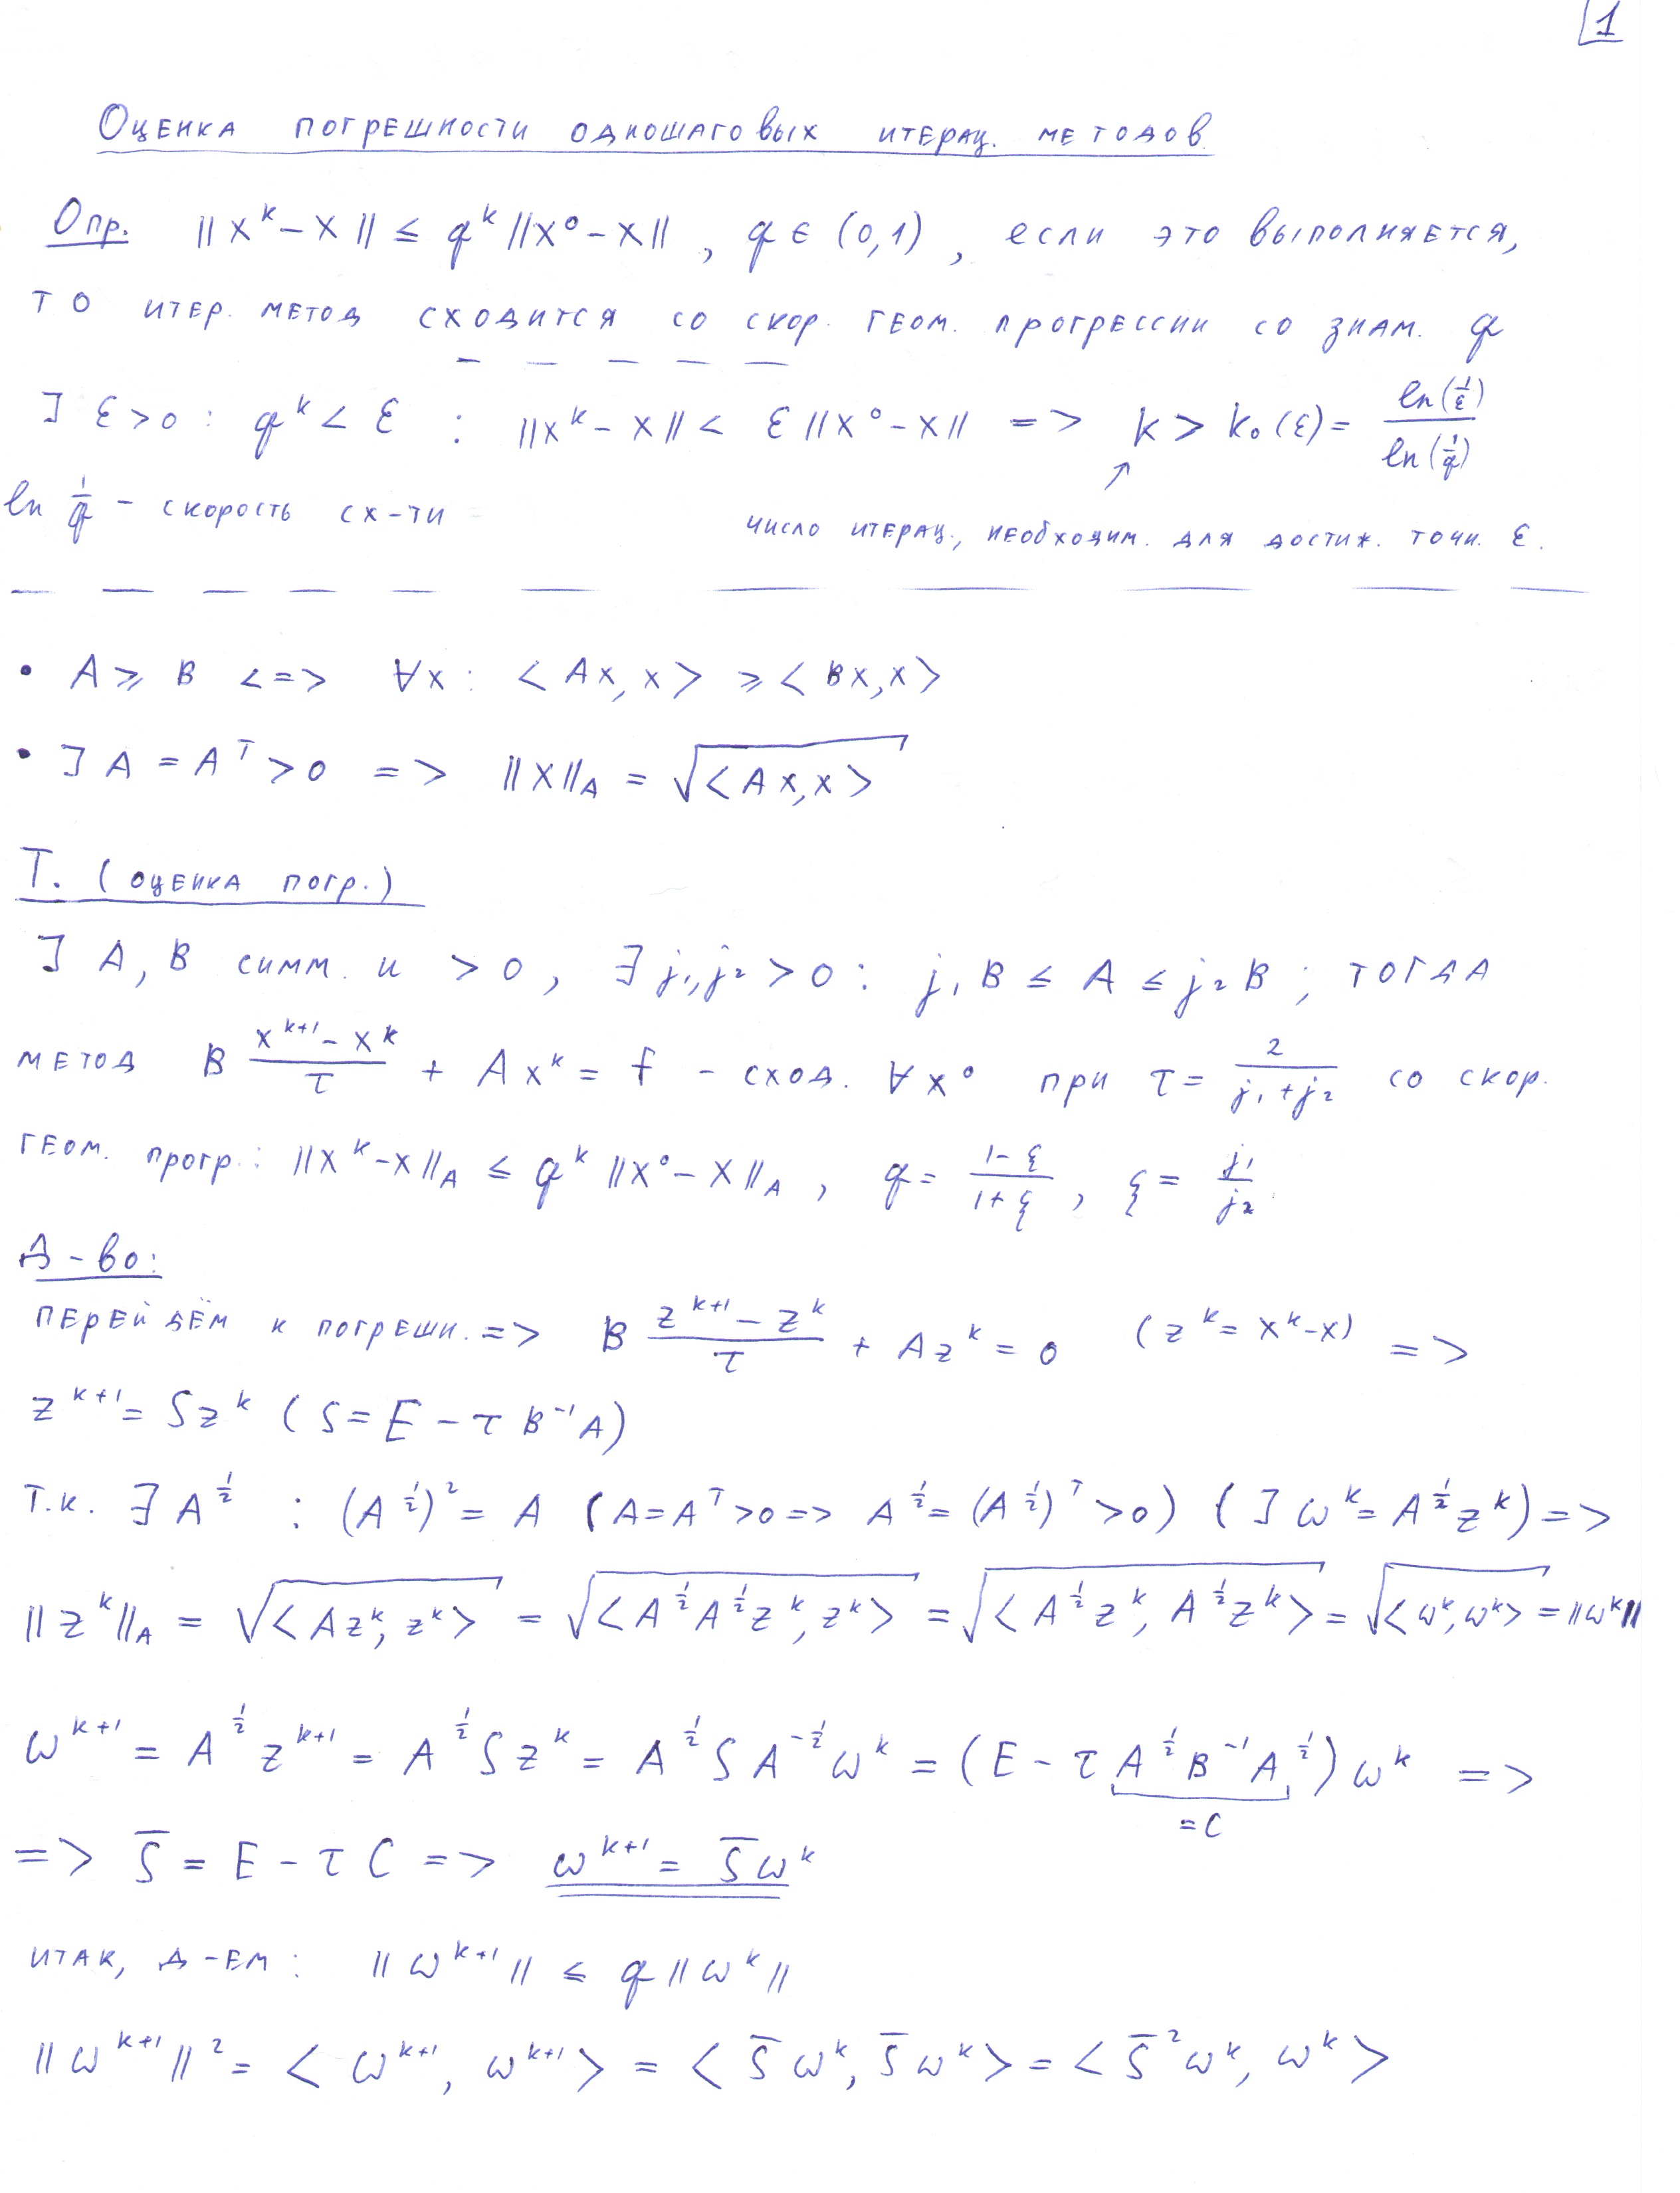 1
Оценка погрешности одношаговых итерац. методов
Опр. ||x^k - x|| ≤ q^k ||x^0 - x||, q ∈ (0,1), если это выполняется,
то итер. метод сходится со скор. геом. прогрессии со знам. q
∃ ε > 0 : q^k < ε : ||x^k - x|| < ε ||x^0 - x|| => k > k_0(ε) = ln(1/ε) / ln(1/q)
ln 1/q - скорость сх-ти ↗ число итерац., необходим. для достиж. точн. ε.
• A ≥ B <=> ∀x : <Ax, x> ≥ <Bx, x>
• ] A = A^T > 0 => ||x||_A = √<Ax, x>
Т. (оценка погр.)
] A, B симм. и > 0, ∃ j_1, j_2 > 0 : j_1 B ≤ A ≤ j_2 B ; тогда
метод B (x^{k+1} - x^k)/τ + A x^k = f - сход. ∀ x^0 при τ = 2/(j_1 + j_2) со скор.
геом. прогр.: ||x^k - x||_A ≤ q^k ||x^0 - x||_A, q = (1 - ξ)/(1 + ξ), ξ = j_1/j_2
Д-во:
перейдём к погрешн. => B (z^{k+1} - z^k)/τ + A z^k = 0 (z^k = x^k - x) =>
z^{k+1} = S z^k (S = E - τ B^{-1} A)
т.к. ∃ A^{1/2} : (A^{1/2})^2 = A (A = A^T > 0 => A^{1/2} = (A^{1/2})^T > 0) (] ω^k = A^{1/2} z^k) =>
||z^k||_A = √<A z^k, z^k> = √<A^{1/2} A^{1/2} z^k, z^k> = √<A^{1/2} z^k, A^{1/2} z^k> = √<ω^k, ω^k> = ||ω^k||
ω^{k+1} = A^{1/2} z^{k+1} = A^{1/2} S z^k = A^{1/2} S A^{-1/2} ω^k = (E - τ A^{1/2} B^{-1} A^{1/2}) ω^k =>
= C
=> S̄ = E - τ C => ω^{k+1} = S̄ ω^k
итак, д-ем : ||ω^{k+1}|| ≤ q ||ω^k||
||ω^{k+1}||^2 = <ω^{k+1}, ω^{k+1}> = <S̄ ω^k, S̄ ω^k> = <S̄^2 ω^k, ω^k>